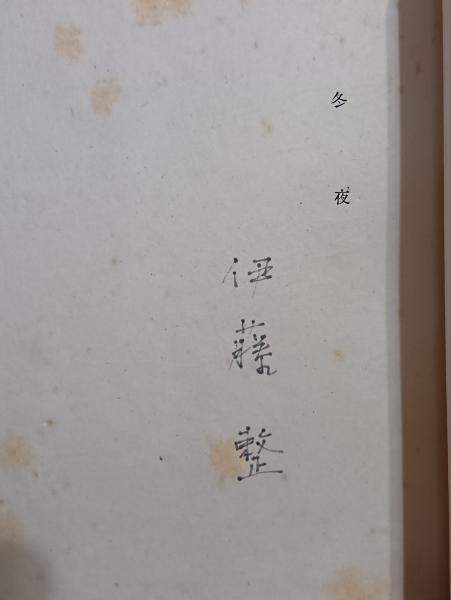 冬夜
伊藤整